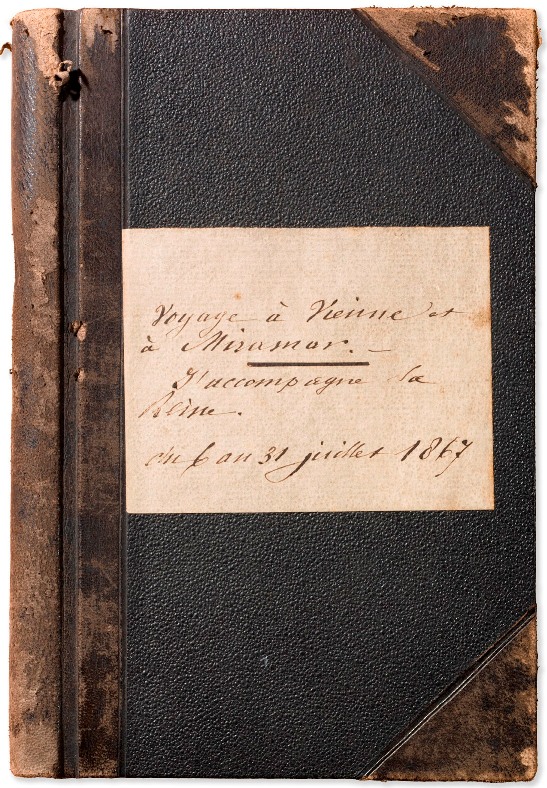 Voyage à Vienne et
à Miramar. -
J'accompagne la
Reine.
du 6 au 31 juillet 1867